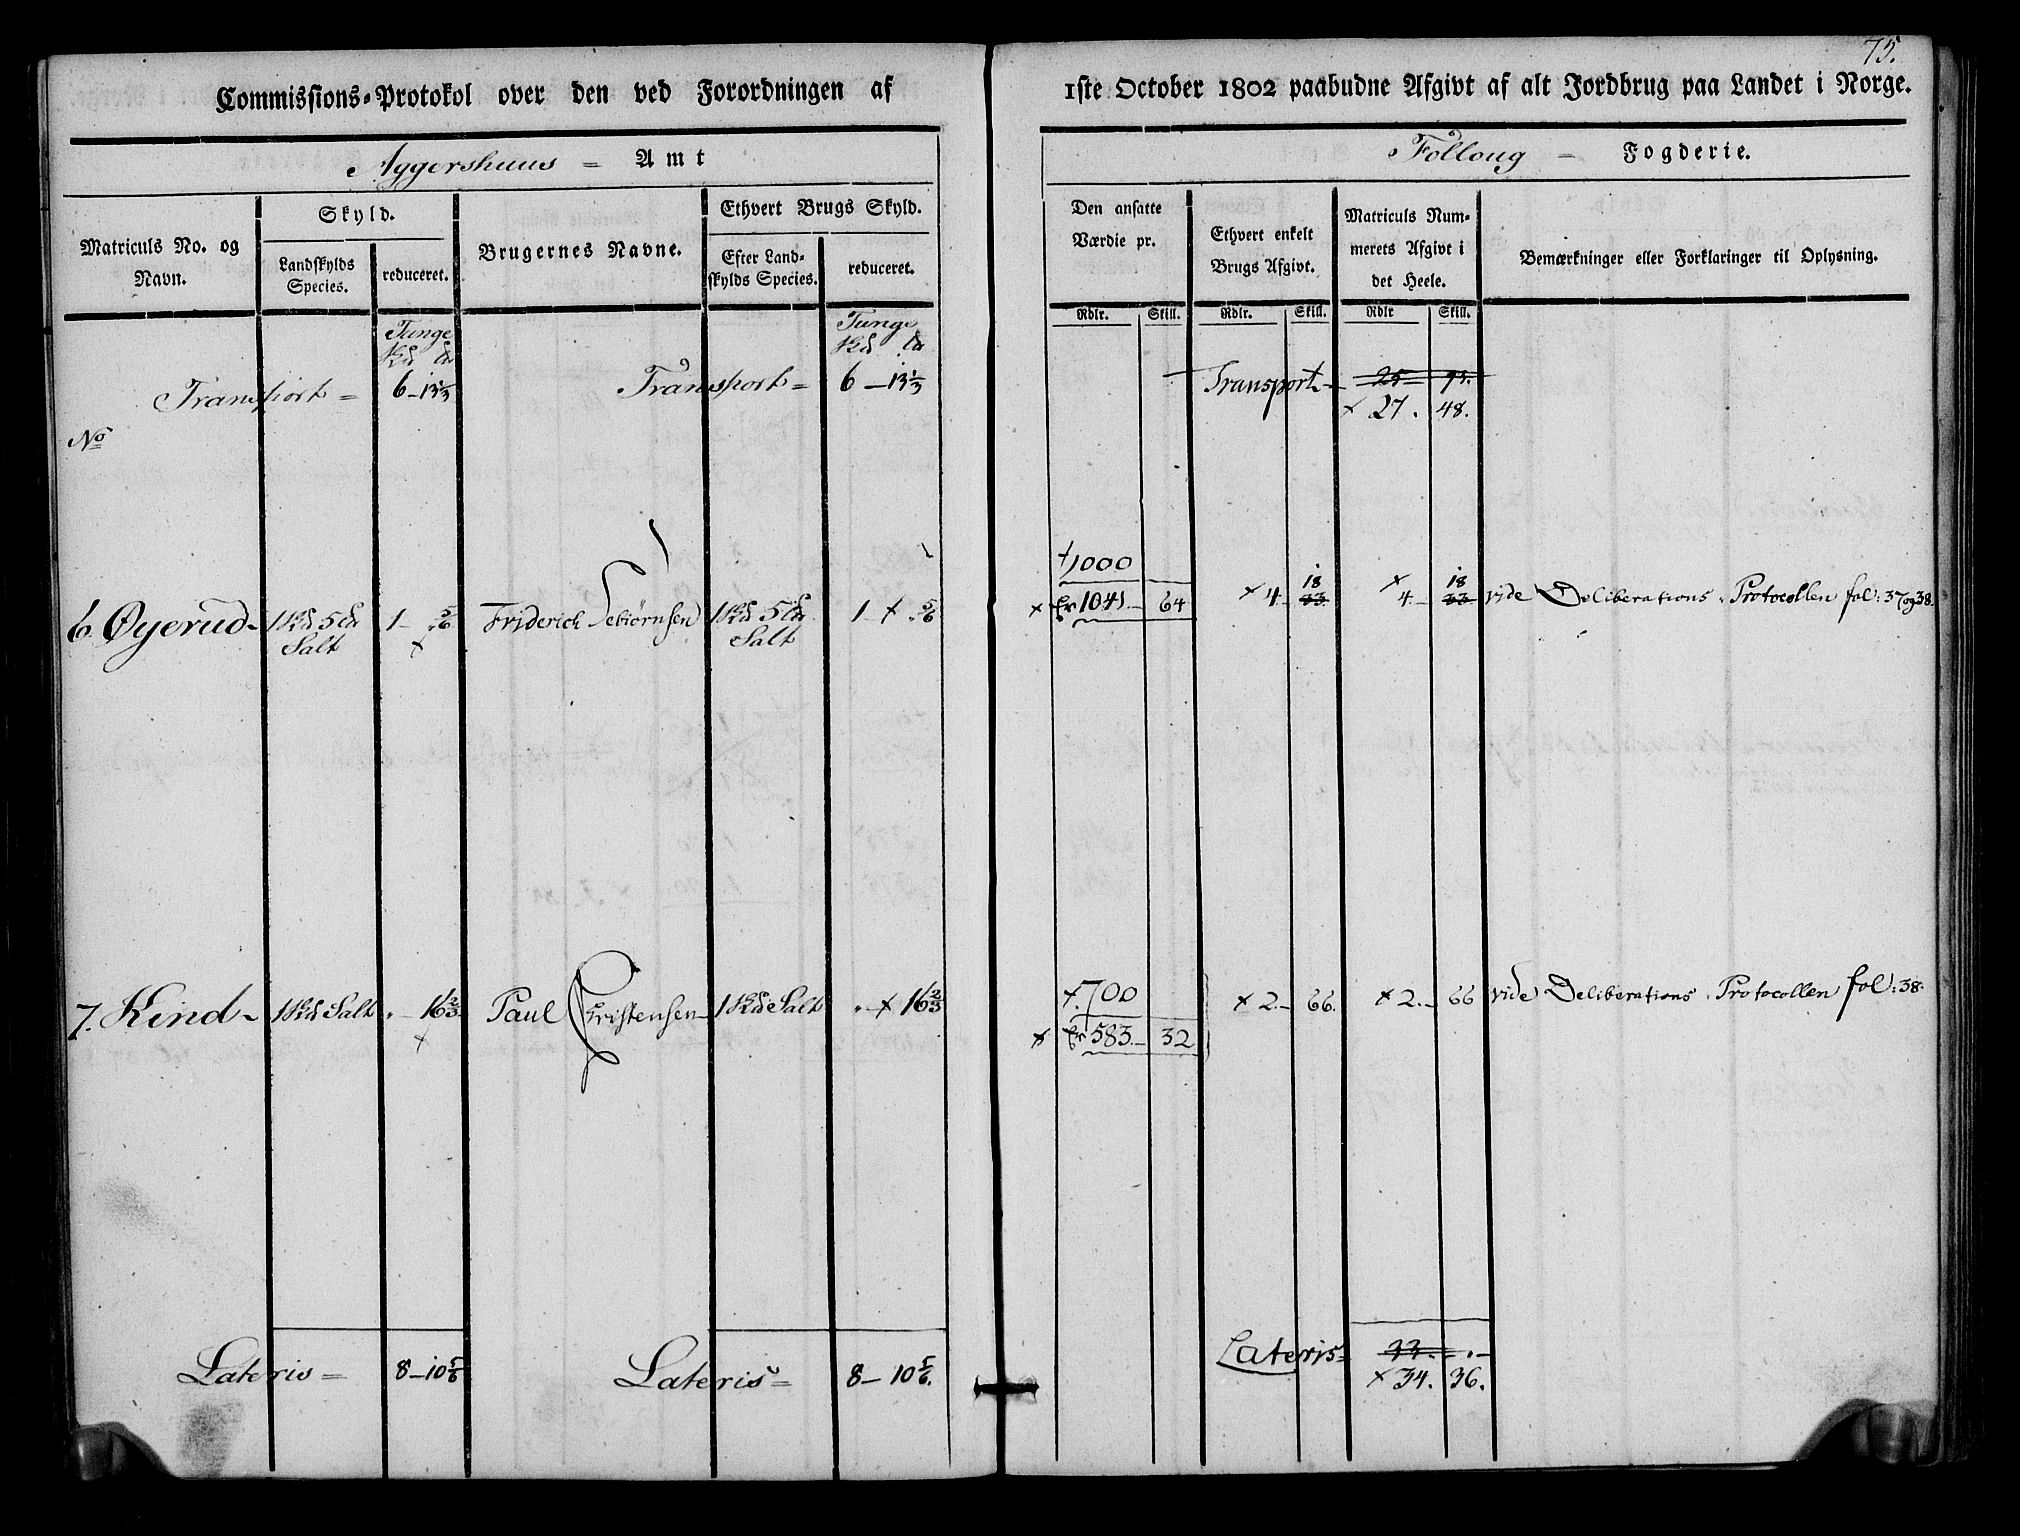 75.
Commissions-Protokol over den ved Forordningen af
1ste October 1802 paabudne Afgivt af alt Jordbrug paa Landet i Norge.
Aggershuus = Amt
Folloug = Fogderie.
Matriculs No. og Navn.
Skyld.
Landskylds Species.
reduceret.
Brugernes Navne.
Ethvert Brugs Skyld.
Efter Landskylds Species.
reduceret.
Den ansatte Værdie pr.
Ethvert enkelt Brugs Afgivt.
Matriculs Nummerets Afgivt i det Heele.
Bemærkninger eller Forklaringer til Oplysning.
Rdlr. Skill. Rdlr. Skill. Rdlr Skill.
Tunge Tunge
Transport = 6 – 13 1/3 Transport = 6 – 13 1/3 Transport – 25 – 95.
× 27. 48.
No
1000 18 18
6. Øyerud – 1 5 Salt 1 – 5/6 Friderich Sebiørnsen 1 5 Salt 1 × 5/6 × 1041 – 64 × 4 – 33 × 4 – 33 vide Deliberations Protocollen fol: 37 og 38.
× 700
7. Kind – 1 Salt " – 16 2/3 Paul Christensen – 1 Salt " × 16 2/3 × 2. – 66. × 2. – 66 vide Deliberations Protocollen fol: 38.
× 583. – 32
Lateris = 8 – 10 5/6 Lateris = 8 – 10 5/6. Lateris = 33. – " –
× 34. 36.